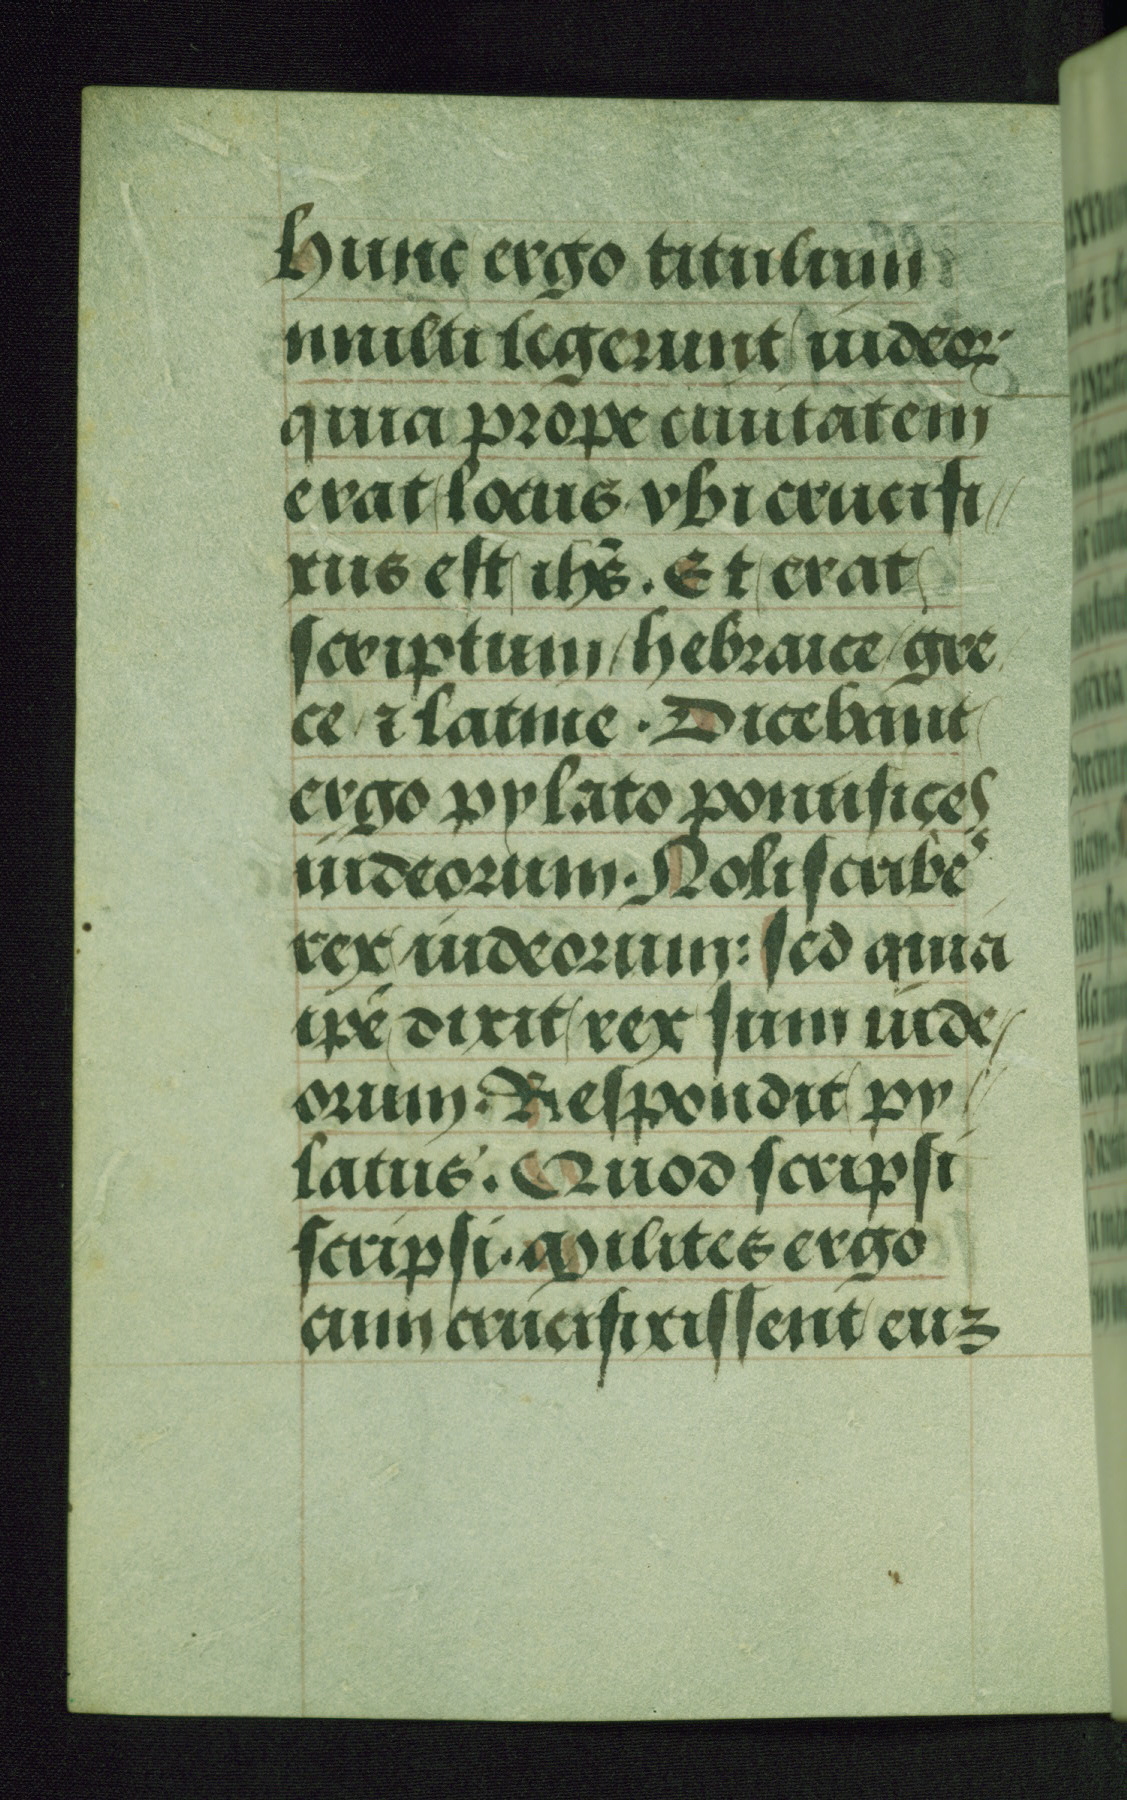 Hunc ergo titulum
multi legerunt iudeoꝝ
quia prope ciuitatem
erat locus vbi crucifi
xus est ihs̄. Et erat
scriptum hebraice gre
ce ⁊ latine. Dicebant
ergo pylato pontifices
iudeorum. Noli scribe᷒
rex iudeorum: sed quia
ip̄e dixit rex sum iude
orum. Respondit py
latus. Quod scripsi
scripsi. Milites ergo
cum crucifixissent euꝫ